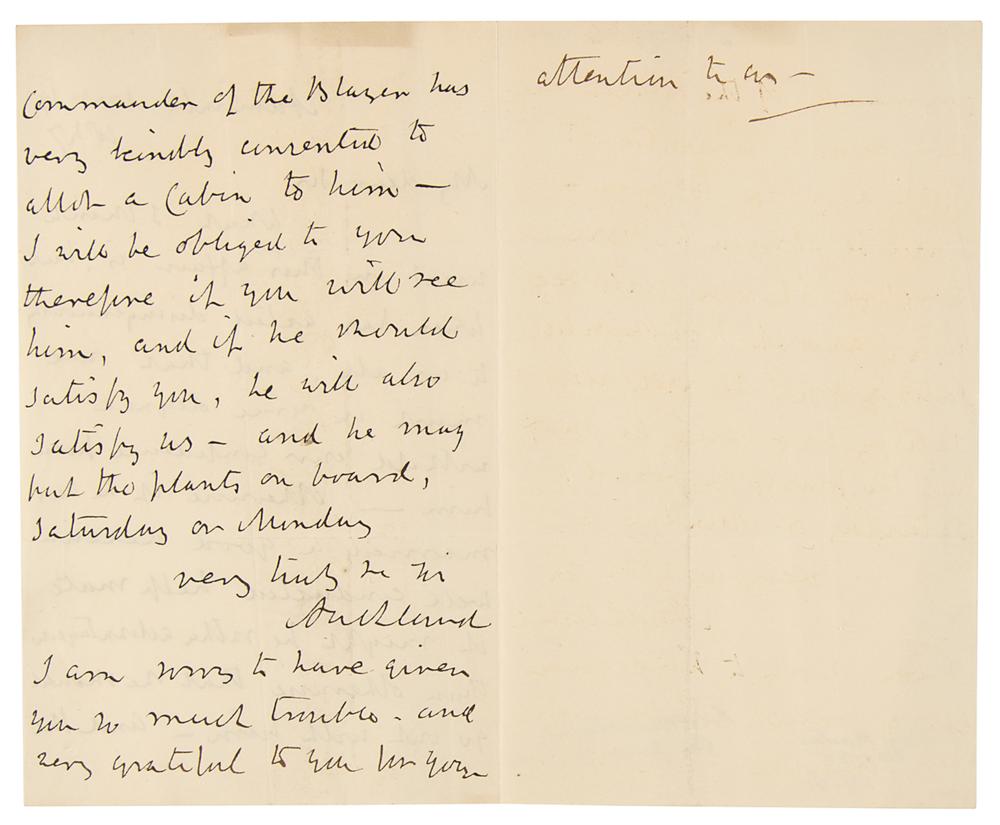 Commander of the Blazer has
very kindly consented to
allot a Cabin to him —
I will be obliged to you
therefore if you will see
him, and if he should
satisfy you, he will also
satisfy us — and he may
put the plants on board,
Saturday or Monday
very truly
Auckland
I am sorry to have given
you so much trouble - and
very grateful to you for your
attention to us —